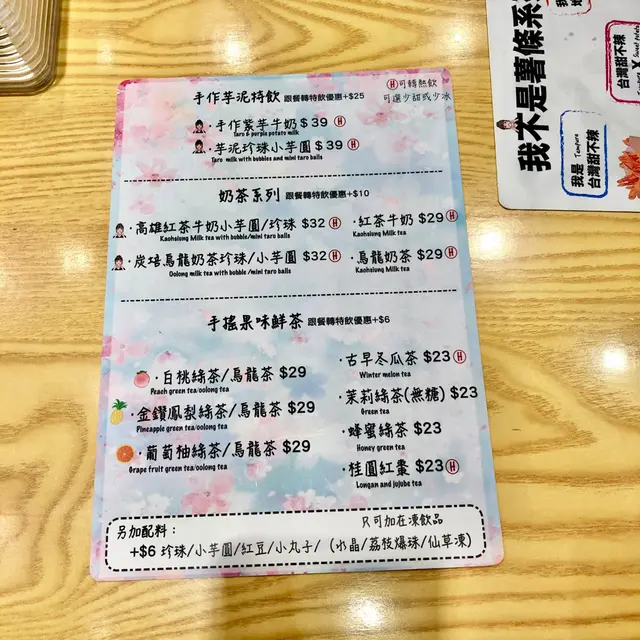 手作芋泥特飲 跟餐轉特飲優惠+$25
Ⓗ可轉熱飲
可選少甜或少冰
·手作紫芋牛奶 $39 Ⓗ
Taro & perple potato milk
·芋泥珍珠小芋圓 $39 Ⓗ
Taro milk with bubbles and mini taro balls
奶茶系列 跟餐轉特飲優惠+$10
·高雄紅茶牛奶小芋圓/珍珠 $32 Ⓗ
Kaohsiung Milk tea with bubble/mini taro balls
·紅茶牛奶 $29 Ⓗ
Kaohsiung Milk tea
·炭培烏龍奶茶珍珠/小芋圓 $32 Ⓗ
Oolong milk tea with bubble /mini taro balls
·烏龍奶茶 $29 Ⓗ
Kaohsiung Milk tea
手搖果味鮮茶 跟餐轉特飲優惠+$6
·白桃綠茶/烏龍茶 $29
Peach green tea/oolong tea
·金鑽鳳梨綠茶/烏龍茶 $29
Pineapple green tea/oolong tea
·葡萄柚綠茶/烏龍茶 $29
Grape fruit green tea/oolong tea
·古早冬瓜茶 $23 Ⓗ
Winter melon tea
·茉莉綠茶(無糖) $23
Green tea
·蜂蜜綠茶 $23
Honey green tea
·桂圓紅棗 $23 Ⓗ
Longan and jujube tea
另加配料：
只可加在凍飲品
+$6 珍珠/小芋圓/紅豆/小丸子/ (水晶/荔枝爆珠/仙草凍)
我不是薯條系
我是 Tempura
台灣甜不辣
台灣甜不辣